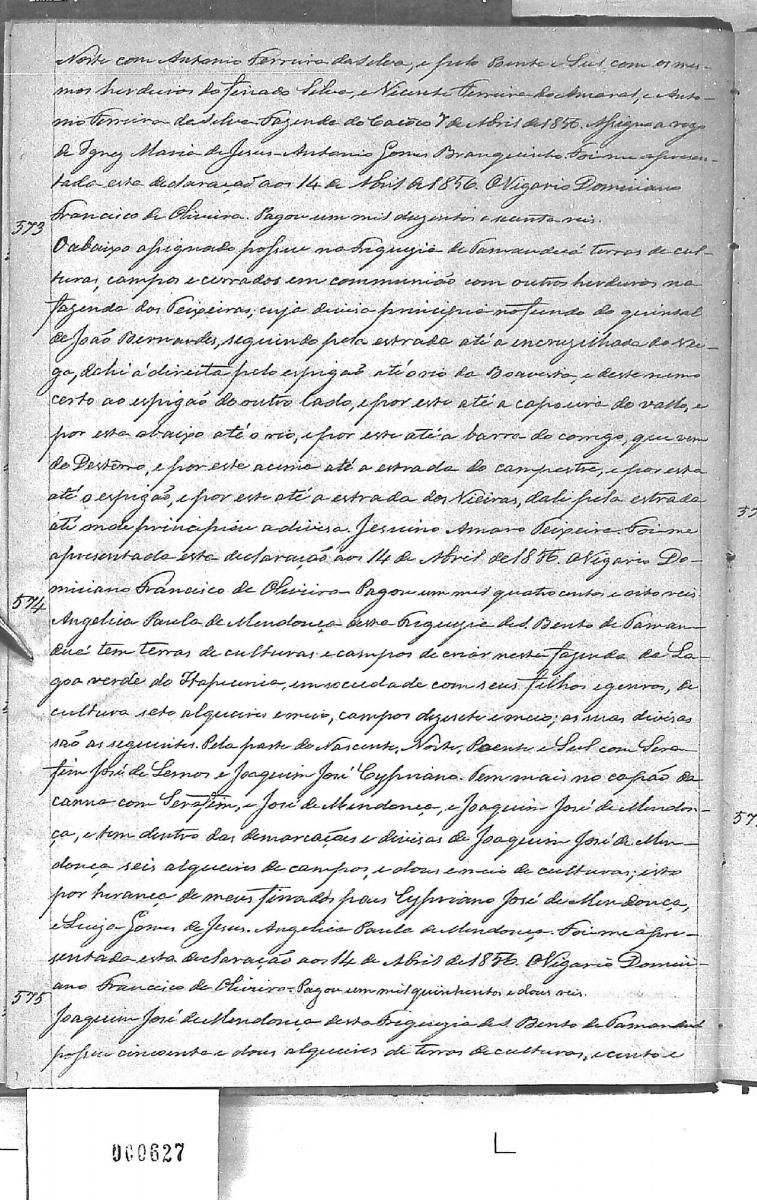 Norte com Antonio Ferreira da Silva, e pelo Poente e Sul com os mes-
mos herdeiros do finado Silva, e Vicente Ferreira do Amaral, e Anto-
nio Ferreira da Silva. Fazenda do Cacôco 7 de Abril de 1856. Assigno a rogo
de Ignez Maria de Jesus Antonio Gomes Branquinho. Foi me apresen-
tada esta declaração aos 14 de Abril de 1856. O Vigario Domiciano
Francisco de Oliveira. Pagou um mil duzentos e secenta reis.
573
O abaixo assignado possue na Freguezia de Tamanduá terras de cul-
turas, campos e cerrados em communião com outros herdeiros na
fazenda dos Teixeiras, cuja divisa principia no fundo do quintal
de João Bernardes, seguindo pela estrada até a encruzilhada do Vei-
ga, dahi á direita pelo espigão até o rio da Boavista, e deste rumo
certo ao espigão do outro lado, e por este até a capoeira do vallo, e
por esta abaixo até o rio, e por este até a barra do corrego, que vem
do Desterro, e por este acima até a estrada do campestre, e por esta
até o espigão, e por este até a estrada dos Vieiras, dali pela estrada
até onde principiou a divisa. Jesuino Amaro Teixeira. Foi me
apresentada esta declaração aos 14 de Abril de 1856. O Vigario Do-
miciano Francisco de Oliveira. Pagou um mil quatrocentos e oito reis
574
Angelica Paula de Mendonça desta Freguezia de S. Bento de Taman-
duá tem terras de culturas e campos de criar nesta fazenda da La-
goa verde do Itapeceria, em sociedade com seus filhos e genros, de
cultura sete alqueires e meio, campos dezesete e meio; as suas divisas
são as seguintes. Pela parte do Nascente, Norte, Poente e Sul com Sera-
fim José de Lemos e Joaquim José Cypriano. Tem mais no capão da
canna com Serafim, e José de Mendonça, e Joaquim José de Mendon-
ça, e tem dentro das demarcações e divisas de Joaquim José de Men-
donça seis alqueires de campos, e dous e meio de culturas; isto
por herança de meus finados paes Cypriano José de Mendonça,
e Luiza Gomes de Jesus. Angelica Paula de Mendonça. Foi me apre-
sentada esta declaração aos 14 de Abril de 1856. O Vigario Domici-
ano Francisco de Oliveira. Pagou um mil quinhentos e dous reis.
575
Joaquim José de Mendonça desta Freguezia de S. Bento de Tamanduá
possue cincoenta e dous alqueires de terras de culturas, e cento e
000627